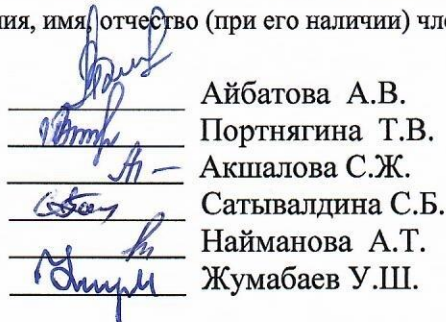 ия, имя, отчество (при его наличии) чле
Айбатова А.В.
Портнягина Т.В.
Акшалова С.Ж.
Сатывалдина С.Б.
Найманова А.Т.
Жумабаев У.Ш.